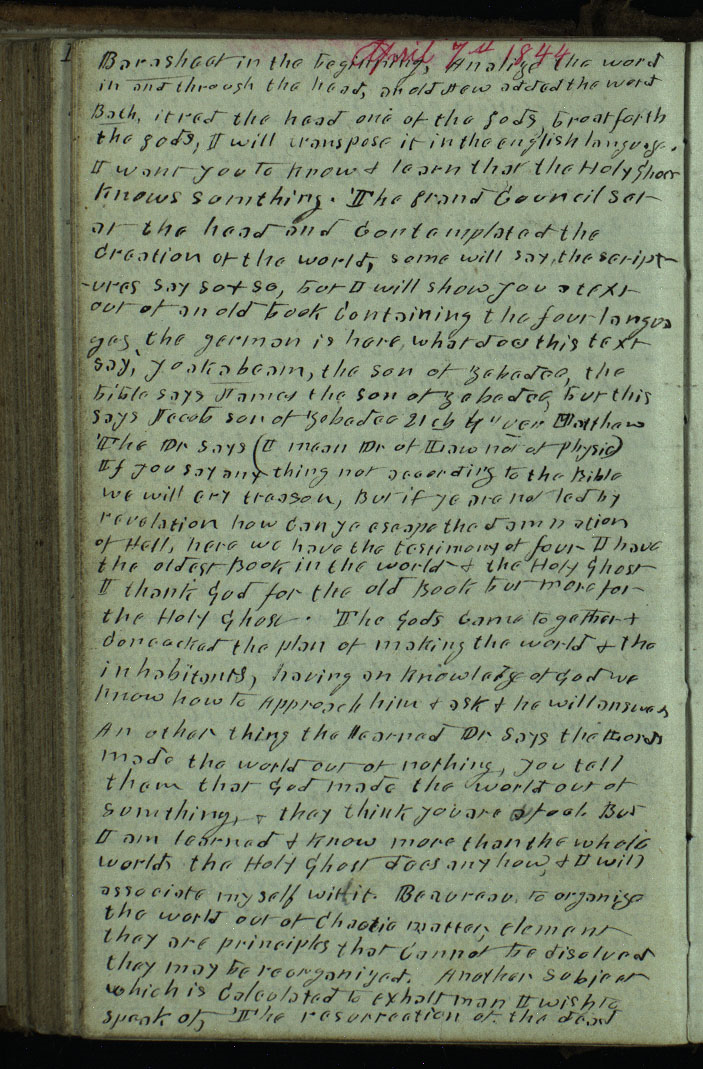 April 7th 1844
1 Barasheet in the beginning, Analize the word
in and through the head, an old Jew added the word
Bath, it red the head one of the gods, broat forth
the gods, I will transpose it in the english language.
I want you to know & learn that the Holy Ghost
knows somthing. The grand Council set
at the head and contemplated the
creation of the world, some will say, the script-
ures say so & so, but I will show you a text
out of an old book containing the four langua
ges, the german is here, what does this text
say, Yoakabeam, the son of Zebedee, the
bible says James the son of Zebedee, but this
says Jacob son of Zebedee 21 ch 4" ver Matthew
The Dr says (I mean Dr of Law not of physic)
If you say any thing not according to the Bible
we will cry treason, But if ye are not led by
revelation how can ye escape the damnation
of Hell, here we have the testimony of four I have
the oldest Book in the world & the Holy Ghost
I thank God for the old Book but more for
the Holy Ghost. The Gods came together &
concocked the plan of making the world & the
inhabitants, having an knowledge of God we
know how to approach him & ask & he will answer
An other thing the learned Dr says the Lord
made the world out of nothing, you tell
them that God made the world out of
somthing, & they think you are a fool. But
I am learned & know more than the whole
world, the Holy Ghost does any how, & I will
associate myself with it. Beaureau, to organise
the world out of chaotic matter, element
they are principles that cannot be disolved
they may be reorganized. Another Subject
which is calculated to exhalt man I wish to
speak of, The resurrection of the dead